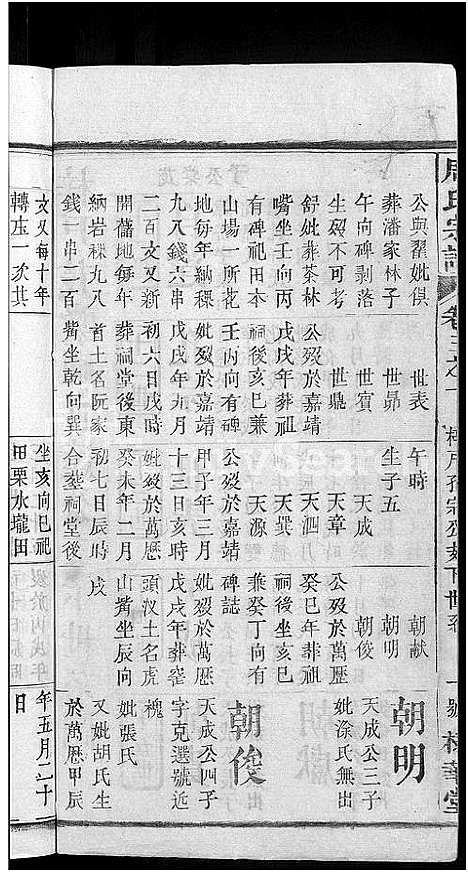 周氏宗譜
卷三之一
下世系
一號
華堂
公與翟妣俱
葬潘家林子
午向碑剥落
生歿不可考
舒妣葬茶林
嘴坐壬向丙
有碑祀田本
山場一所花
地每年納稞
九八錢六串
二百文又新
開蓿地每年
納岩稞九八
錢一串二百
文又每十年
轉庄一次其
世表
世昴
世賓
世鼎
公歿於嘉靖
戊戌年葬祖
祠後亥巳兼
壬丙向有碑
妣歿於嘉靖
戊戌年九月
初六日戌時
葬祠堂後東
首土名阮家
觜坐乾向巽
午時
生子五
天成
天章
天泗
天巽
天源
公歿於嘉靖
甲子年三月
十三日亥時
妣歿於萬歷
癸未年二月
初七日辰時
合墓祠堂後
坐亥向巳祀
田栗水壠田
朝獻
朝明
朝俊
公歿於萬歷
癸巳年葬祖
祠後坐亥巳
兼癸丁向有
碑誌
妣歿於萬歷
戊戌年葬窑
頭汊土名虎
山觜坐辰向
戌
朝明
天成公三子
妣涂氏無出
朝俊
天成公四子
字克選號近
槐
妣張氏
又妣胡氏生
於萬歷甲辰
年五月二十
日